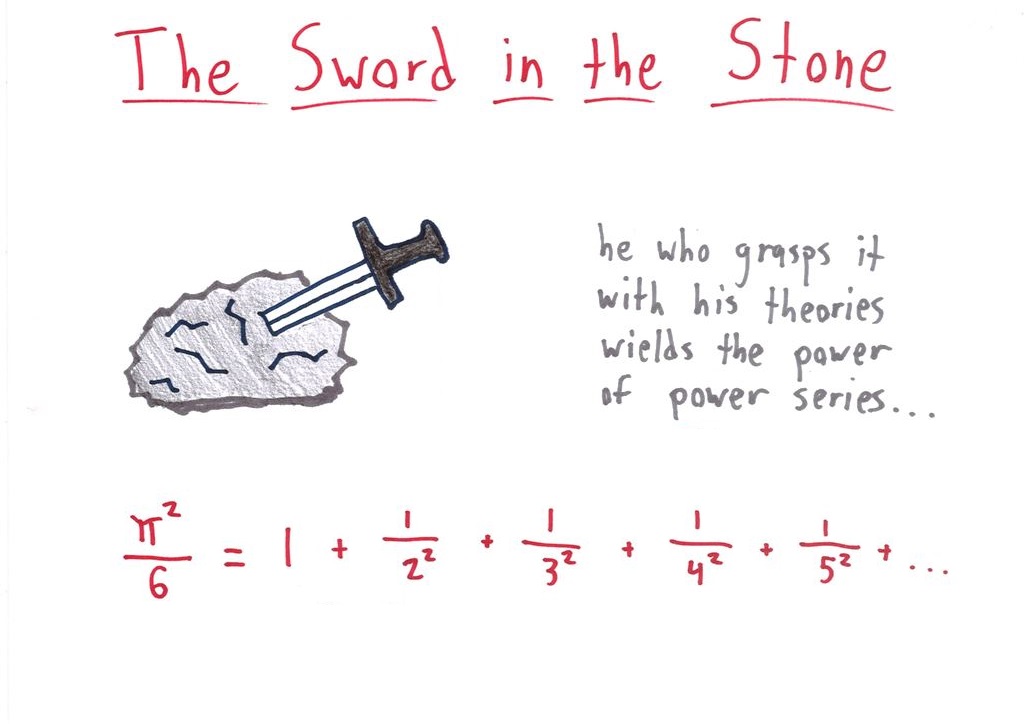 The Sword in the Stone
he who grasps it
with his theories
wields the power
of power series...
π²/6 = 1 + 1/2² + 1/3² + 1/4² + 1/5² + ...